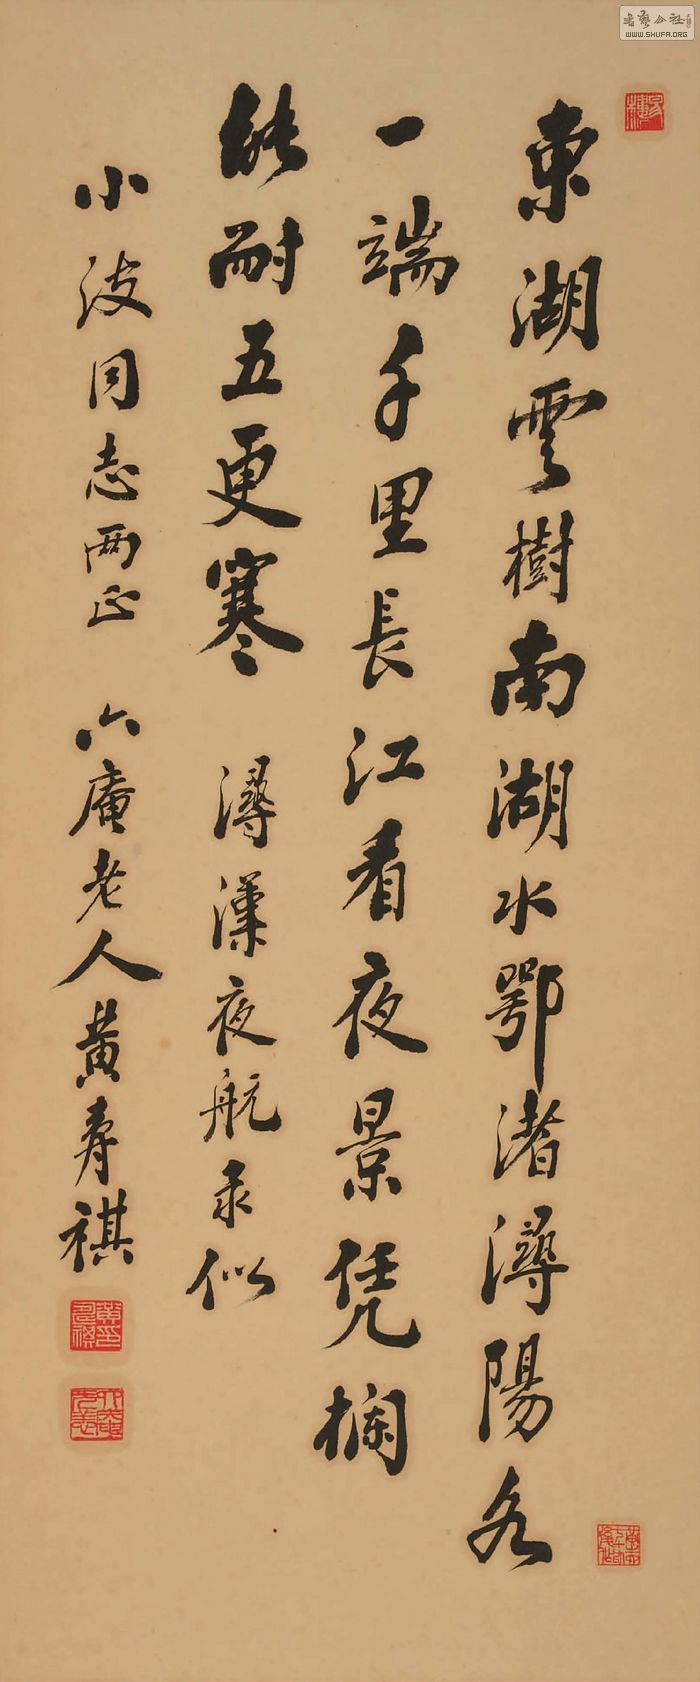 東湖雲樹南湖水鄂渚潯陽各
一端千里長江看夜景凭欄
能耐五更寒 潯漢夜航录似
小波同志两正 六庵老人黄寿祺
WWW.SHUFA.ORG